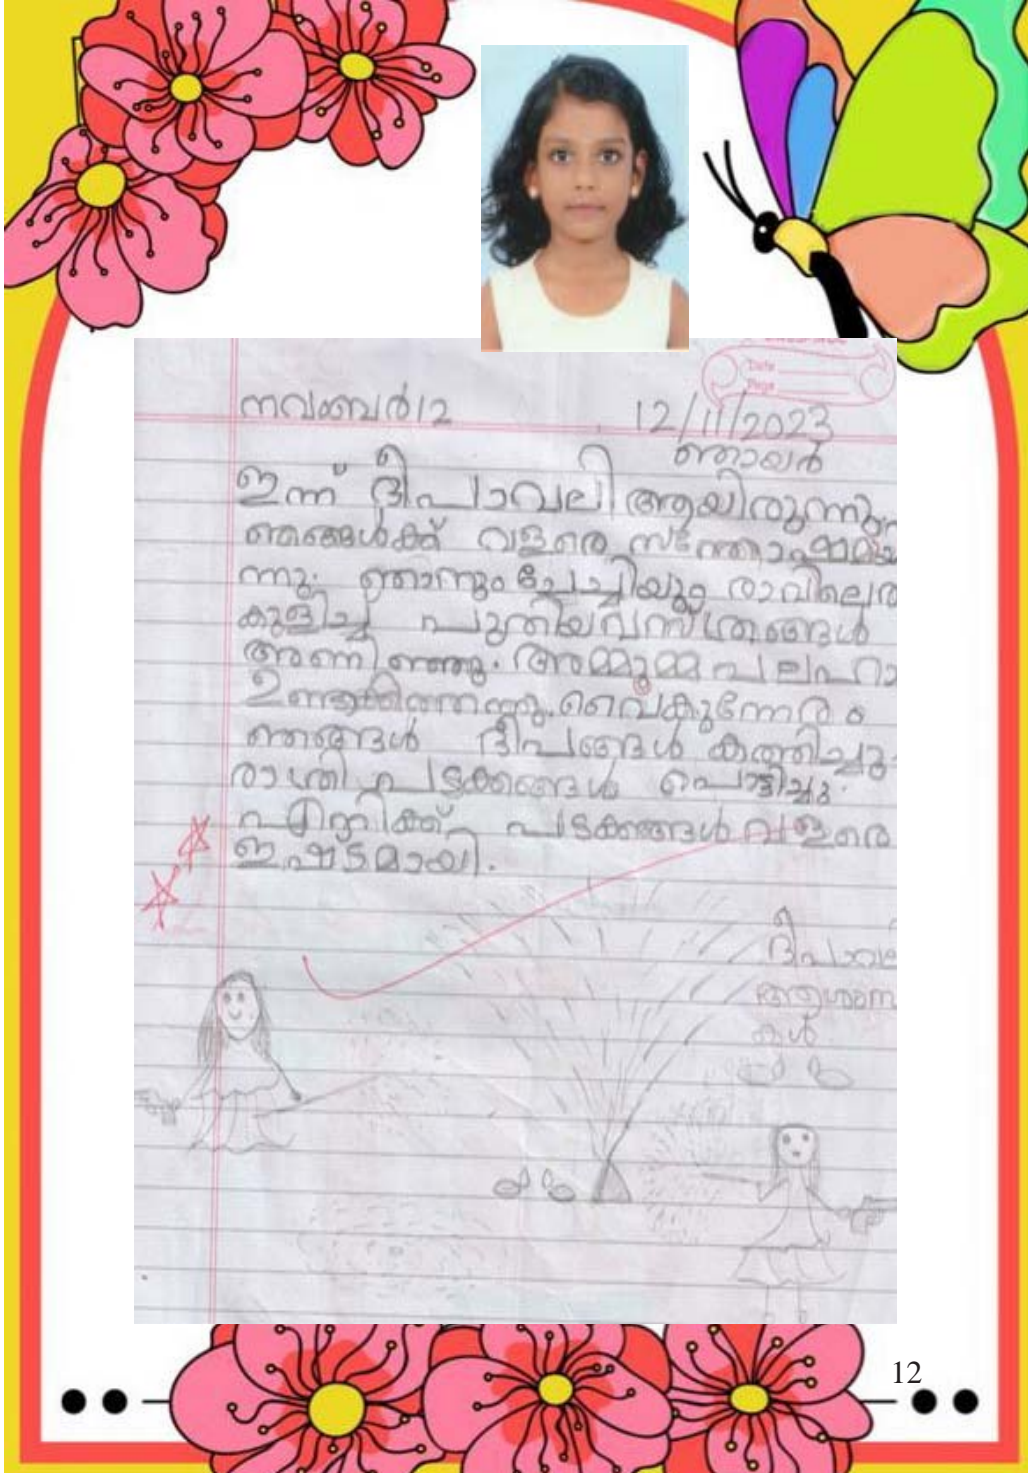 Date
Page
നവംബർ 12
12/11/2023
ഞായർ
ഇന്ന് ദീപാവലി ആയിരുന്നു
ഞങ്ങൾക്ക് വളരെ
ന്നു. ഞാനും ചേച്ചിയും
കുളിച്ച് പുതിയവസ്ത്രങ്ങൾ
അണിഞ്ഞു. അമ്മുമ്മ പലഹാ
ഉണ്ടാക്കിത്തന്നു. വൈകുന്നേരം
ഞങ്ങൾ ദീപങ്ങൾ കത്തിച്ചു.
രാത്രി പടക്കങ്ങൾ പൊട്ടിച്ചു.
പടക്കങ്ങൾ വളരെ
ഇഷ്ടമായി.
ദീപാവലി
ആശംസ
കൾ
12